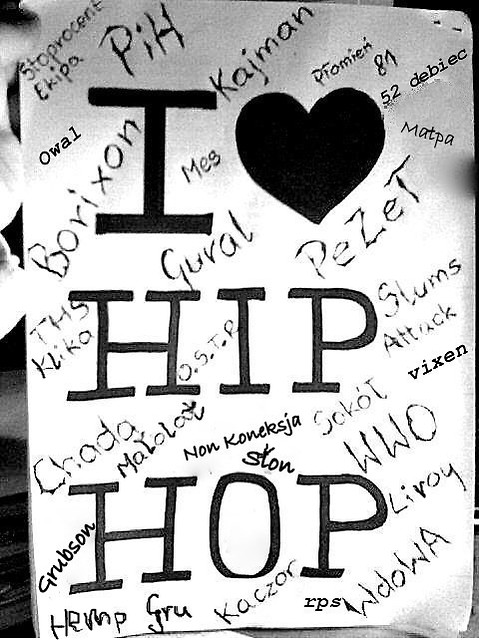 Stoprocent
Ekipa
PiH
Kajman
Płomień
81
52 debiec
Owal
Matpa
I
Borixon
Mes
Gural
PeZeT
Slums
Attack
THS
Klika
HIP
O.S.T.R
vixen
Chada
Małolat
Non Koneksja
Słon
Sokół
WWO
HOP
Liroy
Grubson
WdoWA
Hemp Gru
Kaczor
rps